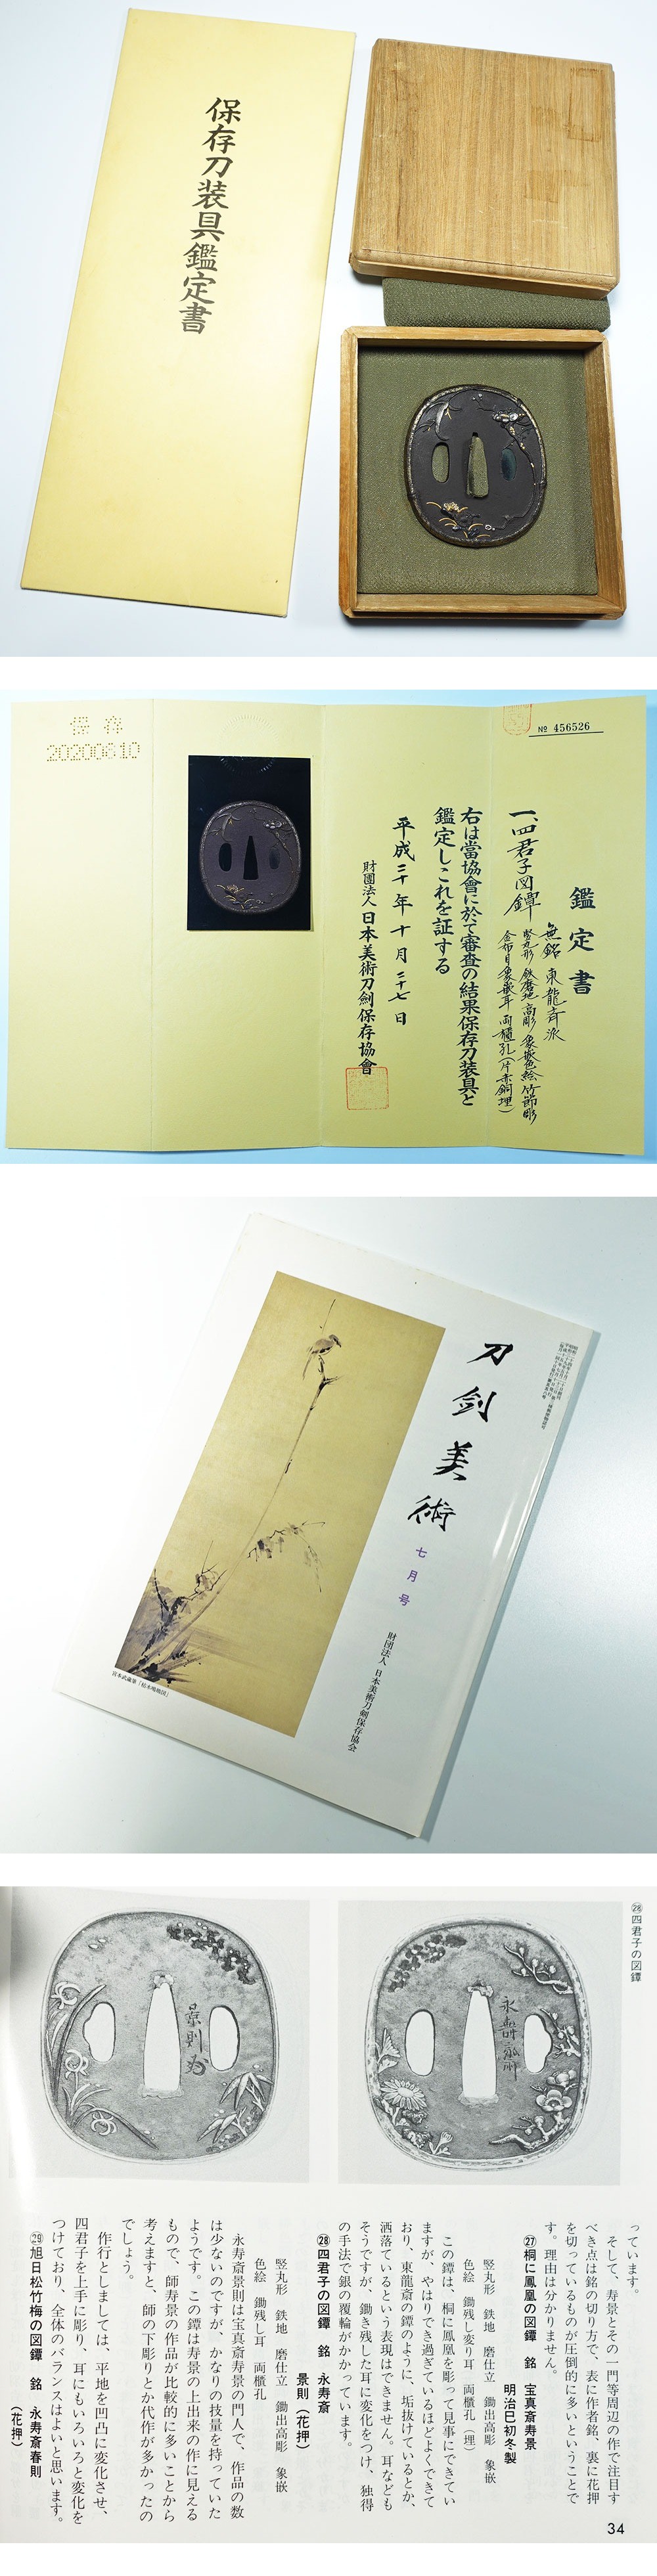 保存刀装具鑑定書
保存
20200810
№ 456526
鑑定書
一、四君子図鐔
無銘 東龍斉派
竪丸形 鉄磨地 高彫 象嵌色絵 竹節彫
金布目象嵌耳 両櫃孔(片赤銅埋)
右は當協會に於て審査の結果保存刀装具と
鑑定しこれを証する
平成二十年十月二十七日
財團法人 日本美術刀劍保存協會
刀剣美術
七月号
財団法人 日本美術刀剣保存協会
宮本武蔵筆「枯木鳴鵙図」
㉘四君子の図鐔
永寿斎
景則
っています。
そして、寿景とその一門等周辺の作で注目す
べき点は銘の切り方で、表に作者銘、裏に花押
を切っているものが圧倒的に多いということで
す。理由は分かりません。
㉗桐に鳳凰の図鐔 銘 宝真斎寿景
明治巳初冬製
竪丸形 鉄地 磨仕立 鋤出高彫 象嵌
色絵 鋤残し変り耳 両櫃孔(埋)
この鐔は、桐に鳳凰を彫って見事にできてい
ますが、やはりでき過ぎているほどよくできて
おり、東龍斎の鐔のように、垢抜けているとか、
洒落ているという表現はできません。耳なども
そうですが、鋤き残した耳に変化をつけ、独得
の手法で銀の覆輪がかかっています。
㉘四君子の図鐔 銘 永寿斎
景則(花押)
竪丸形 鉄地 磨仕立 鋤出高彫 象嵌
色絵 鋤残し耳 両櫃孔
永寿斎景則は宝真斎寿景の門人で、作品の数
は少ないのですが、かなりの技量を持っていた
ようです。この鐔は寿景の上出来の作に見える
もので、師寿景の作品が比較的に多いことから
考えますと、師の下彫りとか代作が多かったの
でしょう。
作行としましては、平地を凹凸に変化させ、
四君子を上手に彫り、耳にもいろいろと変化を
つけており、全体のバランスはよいと思います。
㉙旭日松竹梅の図鐔 銘 永寿斎春則
(花押)
34